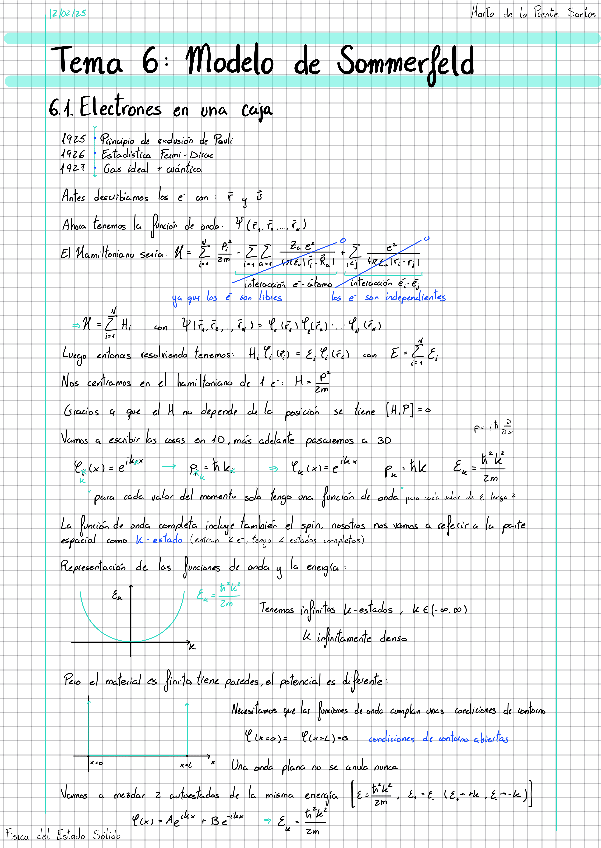 12/03/25
Marta de la Puente Santos
Tema 6: Modelo de Sommerfeld
6.1. Electrones en una caja
1925 Principio de exclusión de Pauli
1926 Estadística Fermi-Dirac
1927 Gas ideal + cuántica
Antes describíamos los e⁻ con: r⃗ y v⃗
Ahora tenemos la función de onda: Ψ(r⃗₁, r⃗₂, ..., r⃗ₙ)
El Hamiltoniano sería: H = Σ p²/2m - Σ Σ Zₐe²/4πε₀|r⃗ᵢ-R⃗ₐ| + Σ e²/4πε₀|r⃗ᵢ-r⃗ⱼ|
0 0
interacción e⁻-átomo interacción e⁻ᵢ-e⁻ⱼ
ya que los e⁻ son libres los e⁻ son independientes
⇒ H = Σ Hᵢ con Ψ(r⃗₁, r⃗₂, ..., r⃗ₙ) = φ₁(r⃗₁) φ₂(r⃗₂) ... φₙ(r⃗ₙ)
Luego entonces resolviendo tenemos: Hᵢ φᵢ(r⃗ᵢ) = εᵢ φᵢ(r⃗ᵢ) con E = Σ εᵢ
Nos centramos en el hamiltoniano de 1 e⁻: H = p²/2m
Gracias a que el H no depende de la posición se tiene [H,P]=0
Vamos a escribir las cosas en 1D, más adelante pasaremos a 3D
φₖ(x) = e^{ikx} → pₖ = ħk ⇒ φₖ(x) = e^{ikx} pₖ = ħk εₖ = ħ²k²/2m
para cada valor del momento solo tengo una función de onda
La función de onda completa incluye también el spin, nosotros nos vamos a referir a la parte
espacial como k-estado
Representación de las funciones de onda y la energía:
εₖ
εₖ = ħ²k²/2m
k
Tenemos infinitos k-estados, k∈(-∞,∞)
k infinitamente denso
Pero el material es finito, tiene paredes, el potencial es diferente:
Necesitamos que las funciones de onda cumplan unas condiciones de contorno
φ(x=0) = φ(x=L)=0 condiciones de contorno abiertas
x=0 x=L x
Una onda plana no se anula nunca
Vamos a mezclar 2 autoestados de la misma energía
φ(x) = Ae^{ikx} + Be^{-ikx} ⇒ εₖ = ħ²k²/2m
Física del Estado Sólido